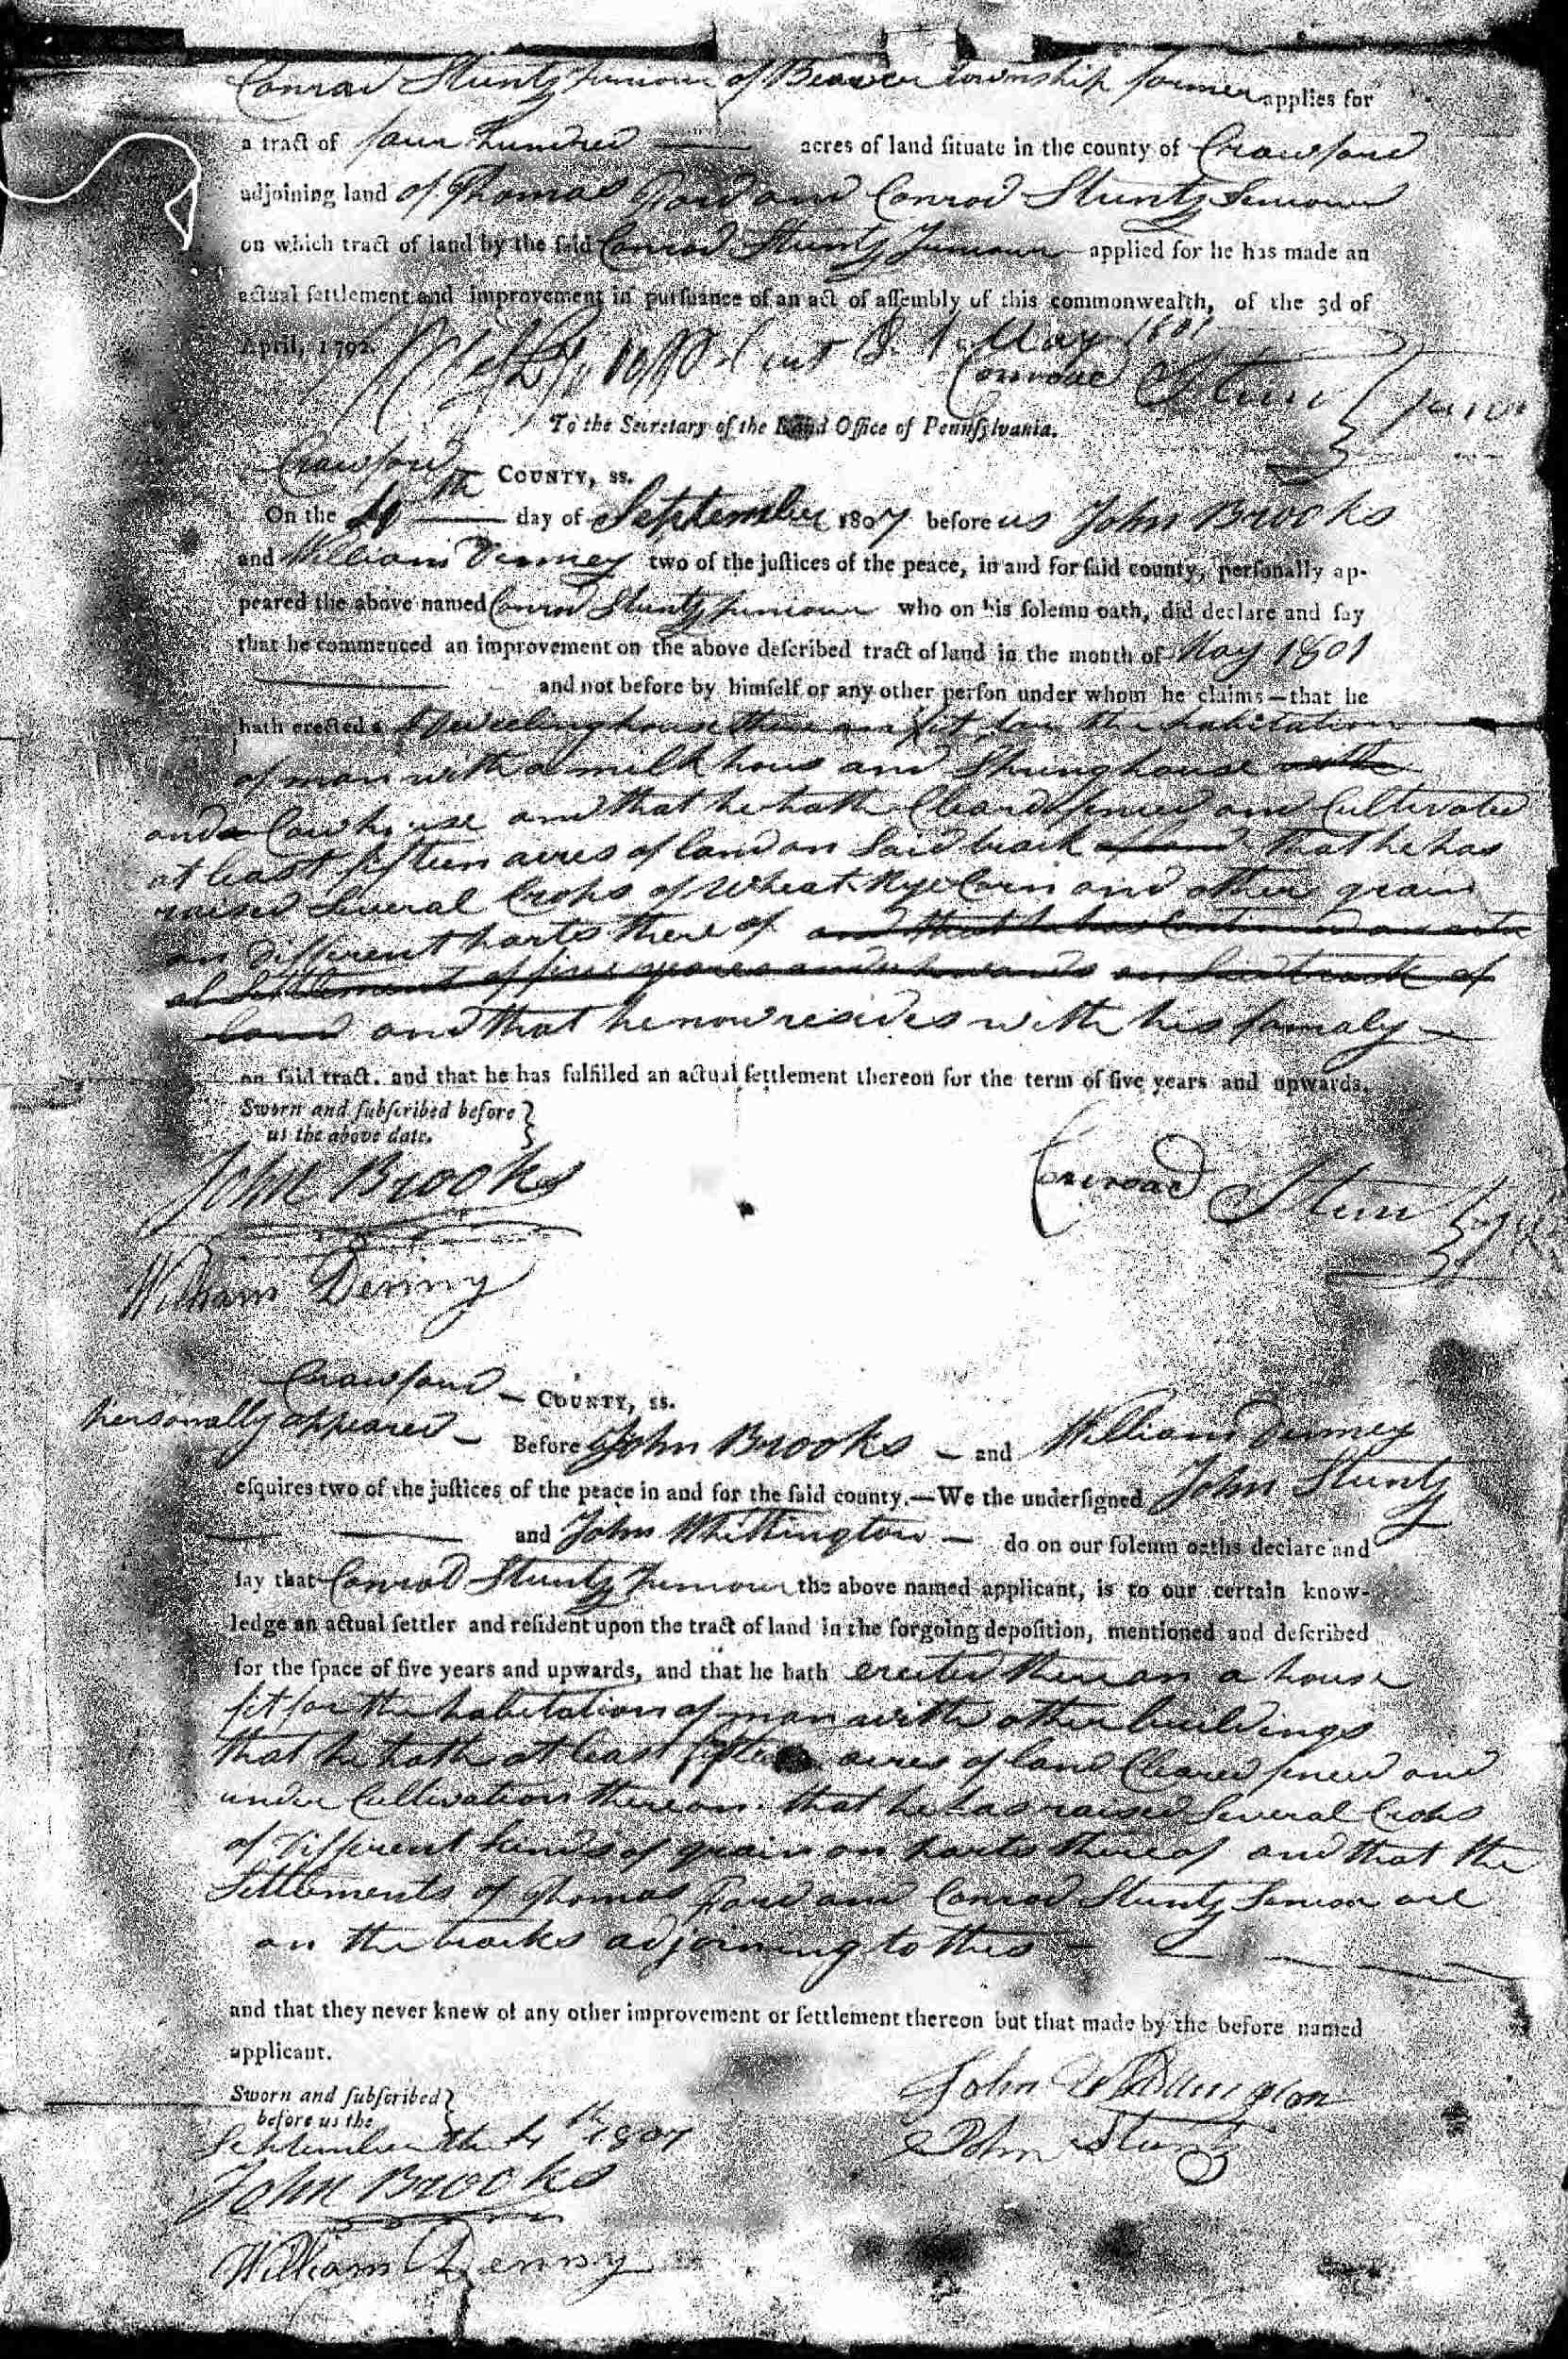 Conrad Stuntz Juniour of Beaver township farmer applies for
a tract of four hundred acres of land situate in the county of Crawford
adjoining land of Thomas Ford and Conrod Stuntz Seniour
on which tract of land by the said Conrod Stuntz Juniour applied for he has made an
actual settlement and improvement in pursuance of an act of assembly of this commonwealth, of the 3d of
April, 1792. May 1801
Conroad Stuntz
To the Secretary of the Land Office of Pennsylvania.
Crawford County, ss.
On the day of September 1807 before us John Brooks
and William Denney two of the justices of the peace, in and for said county, personally ap-
peared the above named Conrod Stuntz Juniour who on his solemn oath, did declare and say
that he commenced an improvement on the above described tract of land in the month of May 1801
and not before by himself or any other person under whom he claims—that he
hath erected a Dweelinghouse there on fit for the habitation
of man with a milk hous and Springhouse with
and a Cow house and that he hath Cleard fenced and Cultivated
at least fifteen acres of land on said track of land that he has
raised several Crops of Wheat Rye Corn and other grain
on different parts there of and that he has Continued an actu
al settlement of five years and upwards on said track of
land and that he now resides with his famaly
on said tract. and that he has fulfilled an actual settlement thereon for the term of five years and upwards.
Sworn and subscribed before
us the above date.
John Brooks
Conroad Stuntz
William Denny
Crawford County, ss.
personally appeared Before John Brooks and William Denney
esquires two of the justices of the peace in and for the said county.—We the undersigned John Stuntz
and John Whittington do on our solemn oaths declare and
say that Conrod Stuntz Juniour the above named applicant, is to our certain know-
ledge an actual settler and resident upon the tract of land in the forgoing deposition, mentioned and described
for the space of five years and upwards, and that he hath erected thereon a house
fit for the habitation of man with other buildings
that he hath at least fifteen acres of land Cleared fenced and
under Cultivation thereon that he has raised several Crops
of Different kinds of grain on parts thereof and that the
Settlements of Thomas Ford and Conrod Stuntz Senior are
on the tracks adjoining to this
and that they never knew of any other improvement or settlement thereon but that made by the before named
applicant.
Sworn and subscribed
before us the
September the 4th 1807
John Whittington
John Stuntz
John Brooks
William Denny